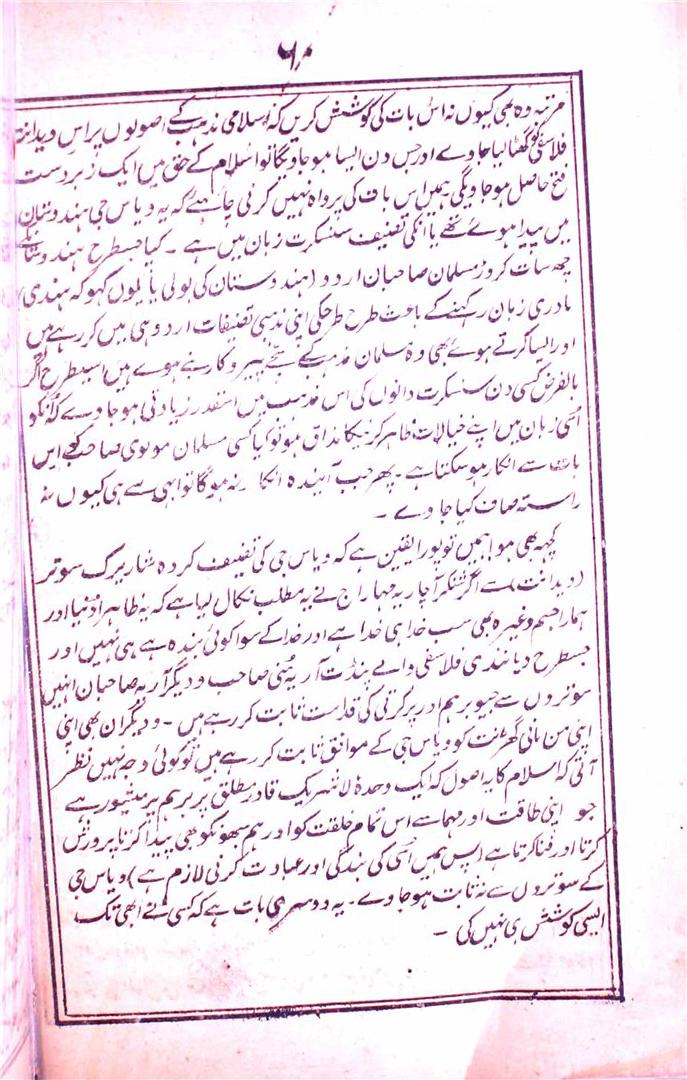 ۶۰
مرتبہ وہ بھی کیوں نہ اس بات کی کوشش کریں کہ اسلامی مذہب کے اصولوں پر اس ویدانتہ
فلاسفی کو گھٹا لیا جاوے اور جس دن ایسا ہو جاویگا تو اسلام کے حق میں ایک زبردست
فتح حاصل ہو جاویگی ہمیں اس بات کی پرواہ نہیں کرنی چاہئے کہ یہ ویاس جی ہندوستان
میں پیدا ہوئے تھے یا انکی تصنیف سنسکرت زبان میں ہے ۔ کیا جسطرح ہندوستان کے
چھ سات کروڑ مسلمان صاحبان اردو (ہندوستان کی بولی یا یوں کہو کہ ہندی)
مادری زبان رکھنے کے باعث طرح طرحکی اپنی مذہبی تصنیفات اردو ہی میں کر رہے ہیں
اور ایسا کرتے ہوئے بھی وہ مسلمان مذہب کے سچے پیرو کار بنے ہوے ہیں اسیطرح اگر
بالفرض کسی دن سنسکرت دانوں کی اس مذہب میں اسقدر زیادتی ہو جاوے کہ انکو
اسی زبان میں اپنے خیالات ظاہر کرنیکا مذاق ہو تو کیا کسی مسلمان مولوی صاحب کو اس
بات سے انکار ہو سکتا ہے ۔ پھر جب آیندہ انکار نہ ہوگا تو ابھی سے ہی کیوں نہ
راستہ صاف کیا جاوے ۔
کچھ بھی ہو ہمیں تو پورا یقین ہے کہ ویاس جی کی تصنیف کردہ شاریرک سوتر
(ویدانت) سے اگر شنکر آچاریہ مہاراج نے یہ مطلب نکال لیا ہے کہ یہ ظاہرا دنیا اور
ہمارا جسم وغیرہ بھی سب خدا ہی خدا ہے اور خدا کے سوا کوئی بندہ ہے ہی نہیں اور
جسطرح دیانندی فلاسفی والے پنڈت آریہ مُنی صاحب و دیگر آریہ صاحبان انہیں
سوتروں سے جیو برہم اور پرکرتی کی قدامت ثابت کر رہے ہیں ۔ و دیگران بھی اپنی
اپنی من مانی گھڑنت کو ویاس جی کے موافق ثابت کر رہے ہیں تو کوئی وجہ نہیں نظر
آتی کہ اسلام کا یہ اصول کہ ایک وحدہٗ لا شریک قادر مطلق پر برہم پرمیشور ہے
جو اپنی طاقت اور مہما سے اس تمام خلقت کو اور ہم سبھونکو بھی پیدا کرتا پرورش
کرتا اور فنا کرتا ہے (پس ہمیں اسی کی بندگی اور عبادت کرنی لازم ہے) ویاس جی
کے سوتروں سے نہ ثابت ہو جاوے ۔ یہ دوسری بات ہے کہ کسی نے ابھی تک
ایسی کوشش ہی نہیں کی ۔